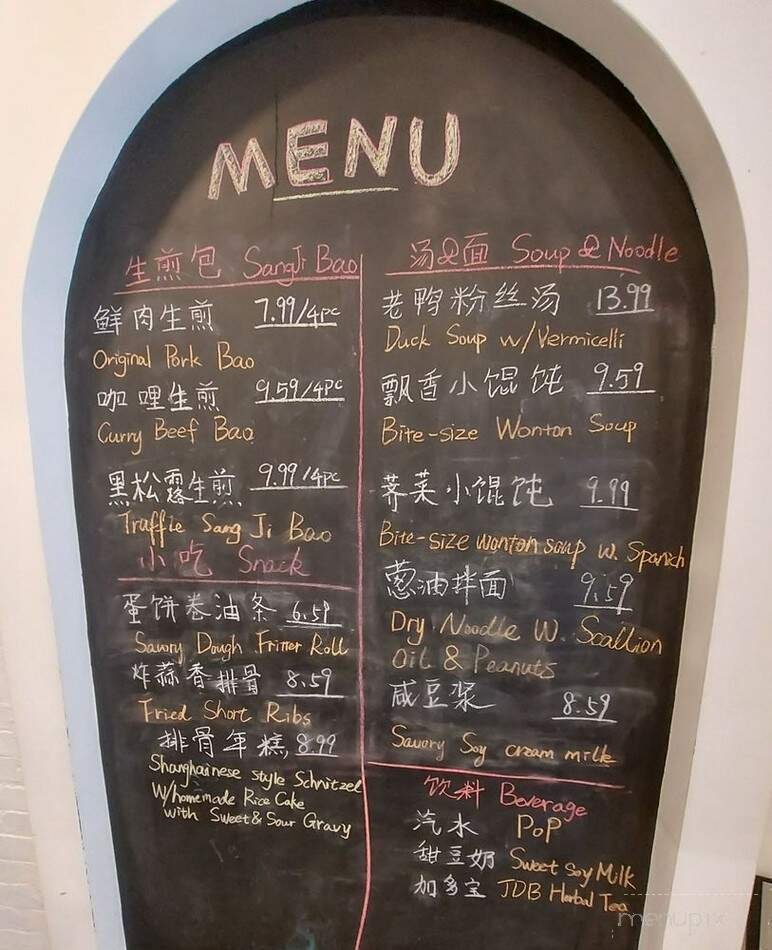 MENU
生煎包 SangJi Bao
鲜肉生煎 7.99/4pc
Original Pork Bao
咖哩生煎 9.59/4pc
Curry Beef Bao
黑松露生煎 9.99/4pc
Truffle Sang Ji Bao
小吃 Snack
蛋饼卷油条 6.59
Savory Dough Fritter Roll
炸蒜香排骨 8.59
Fried Short Ribs
排骨年糕 8.99
Shanghainese style Schnitzel
W/homemade Rice Cake
with Sweet & Sour Gravy
汤&面 Soup & Noodle
老鸭粉丝汤 13.99
Duck Soup w/Vermicelli
飘香小馄饨 9.59
Bite-size Wonton Soup
荠菜小馄饨 9.99
Bite-size wonton soup w. Spanich
葱油拌面 9.59
Dry Noodle W. Scallion
Oil & Peanuts
咸豆浆 8.59
Savory Soy cream milk
饮料 Beverage
汽水 PoP
甜豆奶 Sweet Soy Milk
加多宝 JDB Herbal Tea
menupix